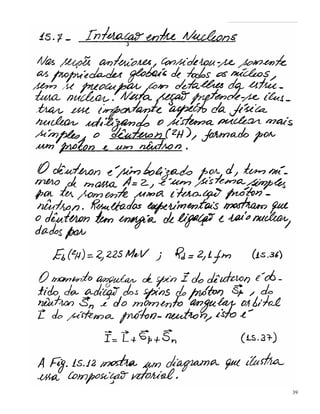 15.7 - Interação entre Nucleons
Nas seções anteriores, considerou-se somente
as propriedades globais de todos os núcleos,
sem se preocupar com detalhes da estru-
tura nuclear. Nesta seção pretende-se ilus-
trar esse importante aspecto da física
nuclear utilizando o sistema nuclear mais
simples, o dêuteron (²H), formado por
um próton e um nêutron.
O dêuteron é simbolizado por d, tem nú-
mero de massa A=2, é um sistema simples,
por ter somente uma interação próton-
nêutron. Resultados experimentais mostram que
o dêuteron tem energia de ligação e raio nuclear,
dados por
E_b(²H) = 2,225 MeV ; R_d = 2,1 fm (15.36)
O momento angular de spin I do dêuteron é ob-
tido da adição dos spins do próton S⃗p, do
nêutron S⃗n e do momento angular orbital
L⃗ do sistema próton-nêutron, isto é
I⃗ = L⃗ + S⃗p + S⃗n (15.37)
A Fig. 15.12 mostra um diagrama que ilustra
essa composição vetorial.
39